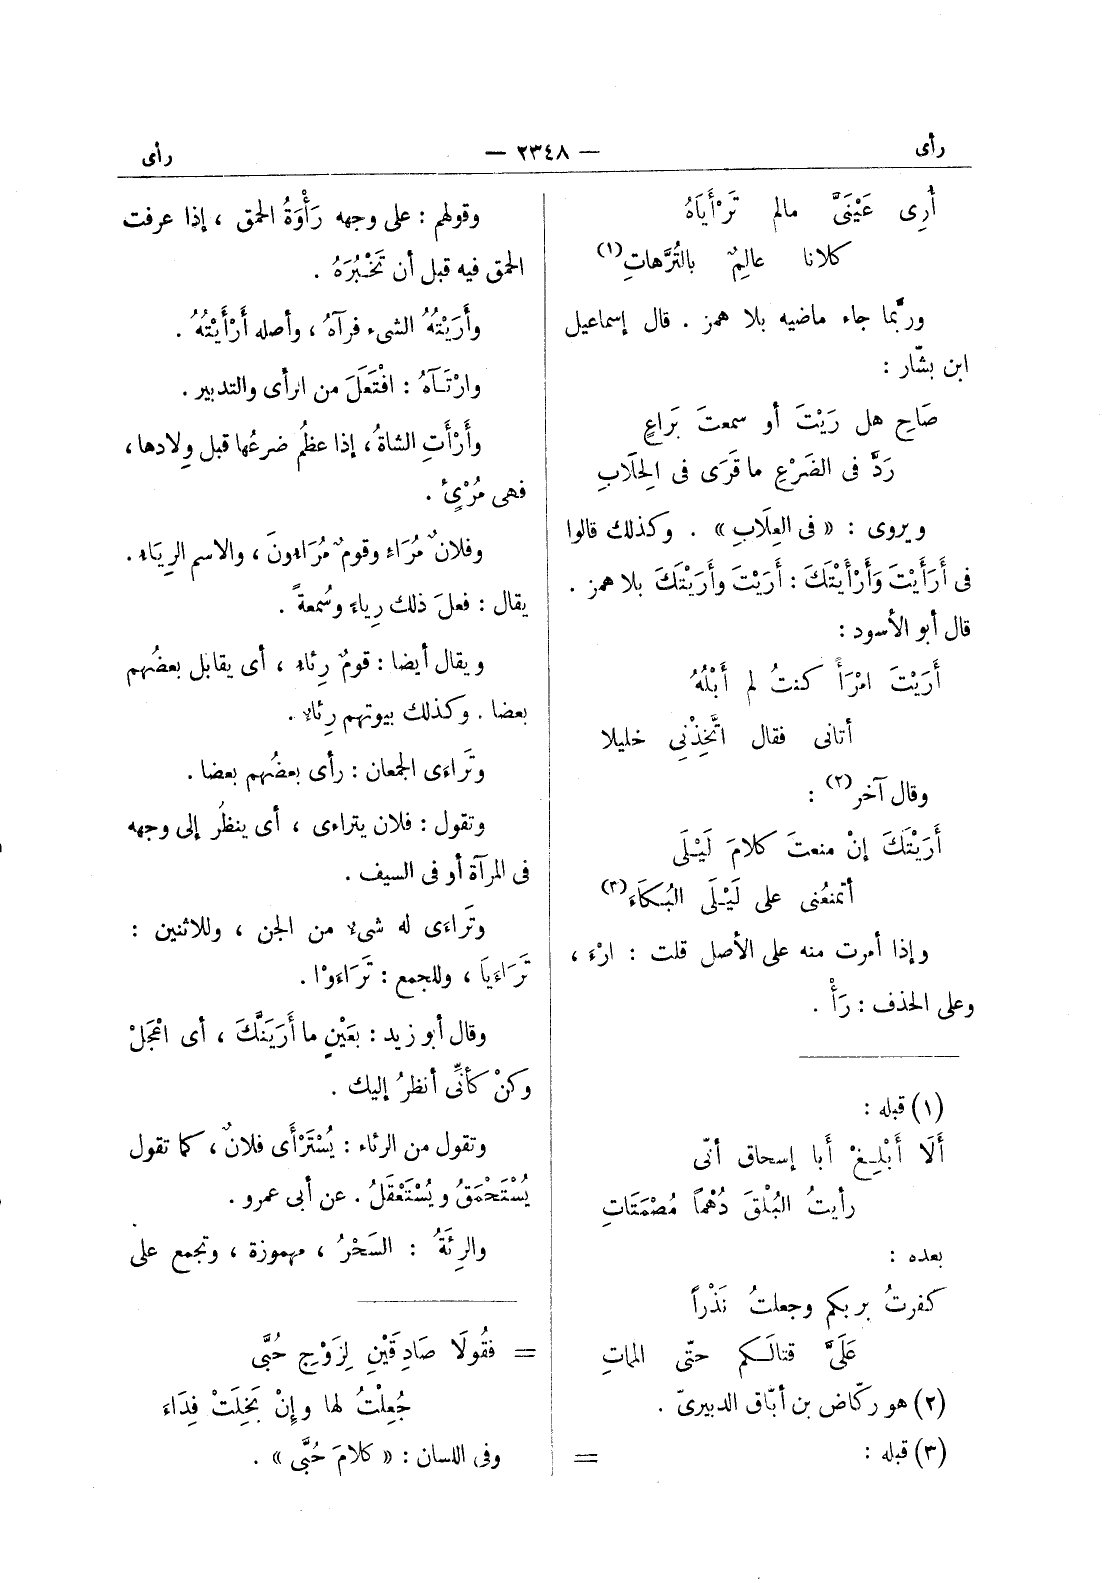 رأى
— ٢٣٤٨ —
رأى
أُرِى عَيْنَىَّ مالم تَرْأَيَاهُ
كلانا عالِمٌ بالتُرَّهاتِ(١)
وربَّما جاء ماضيه بلا همز . قال إسماعيل
ابن بشّار :
صَاحِ هل رَيْتَ أو سمعتَ بَراعٍ
رَدَّ فى الضَرْعِ ما قَرَى فى الحِلَابِ
ويروى : « فى العِلَابِ » . وكذلك قالوا
فى أَرَأَيْتَ وَأَرْأَيْتَكَ : أَرَيْتَ وأَرَيْتَكَ بلا همز .
قال أبو الأسود :
أَرَيْتَ امْرَأً كنتُ لم أَبْلُهُ
أتانى فقال اتَّخِذْنِى خليلا
وقال آخر(٢) :
أَرَيْتَكَ إنْ منعتَ كلامَ لَيْلَى
أتمنعُنى على لَيْلَى البُكَاءَ(٣)
وإذا أمرت منه على الأصل قلت : ارْءَ ،
وعلى الحذف : رَأْ .
(١) قبله :
أَلَا أَبْلِغْ أَبا إسحاق أنّى
رأيتُ البُلْقَ دُهْماً مُصْمَتَاتِ
بعده :
كفرتُ بربكم وجعلتُ نَذْراً
عَلَىَّ قتالَكم حتّى المماتِ
(٢) هو ركّاض بن أبّاق الدبيرىّ .
(٣) قبله :
=
وقولهم : على وجهه رَأْوَةُ الحمق ، إذا عرفت
الحمق فيه قبل أن تَخْبُرَهُ .
وأَرَيْتُهُ الشىء فرآهُ ، وأصله أَرْأَيْتُهُ .
وارْتَآهُ : افْتَعَلَ من الرأى والتدبير .
وأَرْأَتِ الشاةُ ، إذا عظُم ضرعُها قبل وِلادها ،
فهى مُرْئٍ .
وفلانٌ مُرَاءٍ وقومٌ مُرَاءونَ ، والاسم الرِيَاء .
يقال : فعلَ ذلك رِياءً وسُمعةً .
ويقال أيضا : قومٌ رِئَاءٌ ، أى يقابل بعضُهم
بعضا . وكذلك بيوتهم رِئَاءٌ .
وتَراءَى الجمعان : رأى بعضُهم بعضا .
وتقول : فلان يتراءى ، أى ينظُر إلى وجهه
فى المرآة أو فى السيف .
وتَراءَى له شىءٌ من الجن ، وللاثنين :
تَرَاءَيَا ، وللجمع : تَرَاءَوْا .
وقال أبو زيد : بَعَيْنٍ ما أَرَيَنَّكَ ، أى اعْجَلْ
وكنْ كأنِّى أنظرُ إليك .
وتقول من الرئاء : يُسْتَرْأَى فلانٌ ، كما تقول
يُسْتَحْمَقُ ويُسْتَعْقَلُ . عن أبى عمرو .
والرِئَةُ : السَحْرُ ، مهموزة ، وتجمع على
= فقُولَا صَادِقَيْنِ لِزَوْجِ حُبَّى
جُعِلْتُ لها وإِنْ بَخِلَتْ فِدَاءَ
وفى اللسان : « كلامَ حُبَّى » .